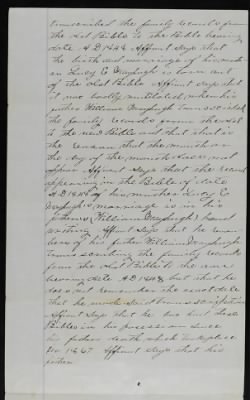 transcribed the family records from
the old Bible to the Bible bearing
date A D 1848. Affiant says that
the birth and marriage of his
Lucy E is torn out
of the old Bible. Affiant says that
it was badly mutilated when his
father William transcribed
the family records from the old
to the new Bible and that that is
the reason that the month or
the day of the month does not
appear Affiant says that the record
appearing in the Bible of date
A D 1848 of his Lucy E
marriage is in his
father's (William) hand
writing Affiant says that he remem
bers of his father William
transcribing the family records
from the old Bible to the one
bearing date A D 1848 but that he
does not remember the exact date
that he made said transcription
Affiant says that he has had these
Bibles in his possession since
his fathers death which took place
in 1867 Affiant says that his
father